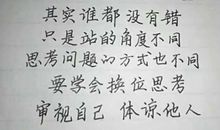 其实谁都没有错
只是站的角度不同
思考问题的方式也不同
要学会换位思考
审视自己 体谅他人